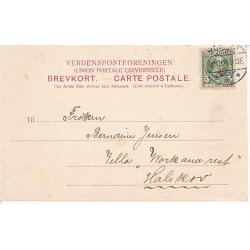 VERDENSPOSTFORENINGEN
(UNION POSTALE UNIVERSELLE)
BREVKORT. — CARTE POSTALE.
(Paa denne Side skrives kun Adressen. (Côté réservé à l'adresse).
Til
Frøken
Jensen
Villa "Work and rest"
Halskov